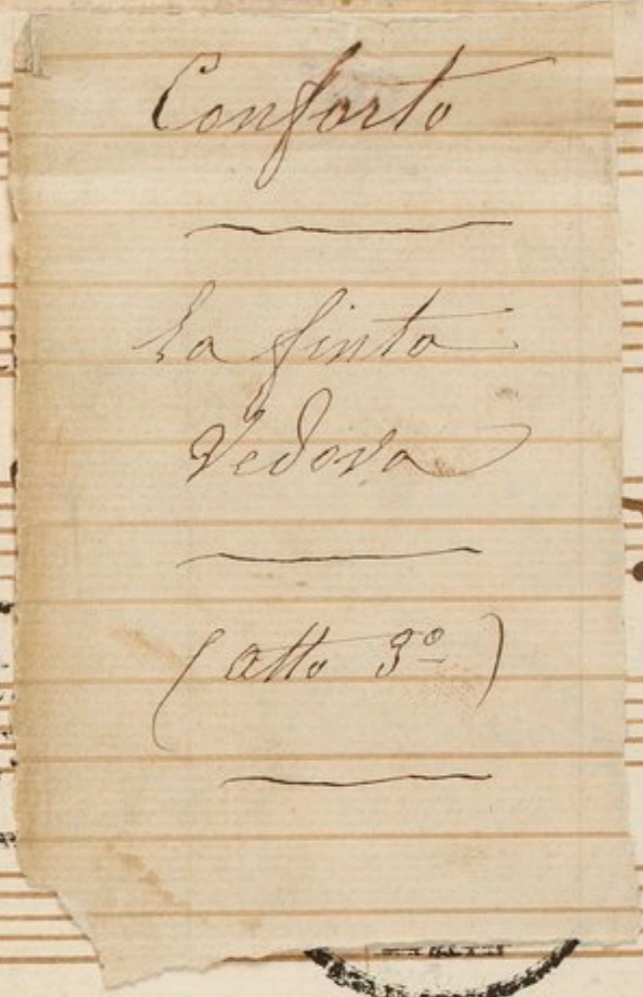 Conforto
La finta
Vedova
(atto 3º)